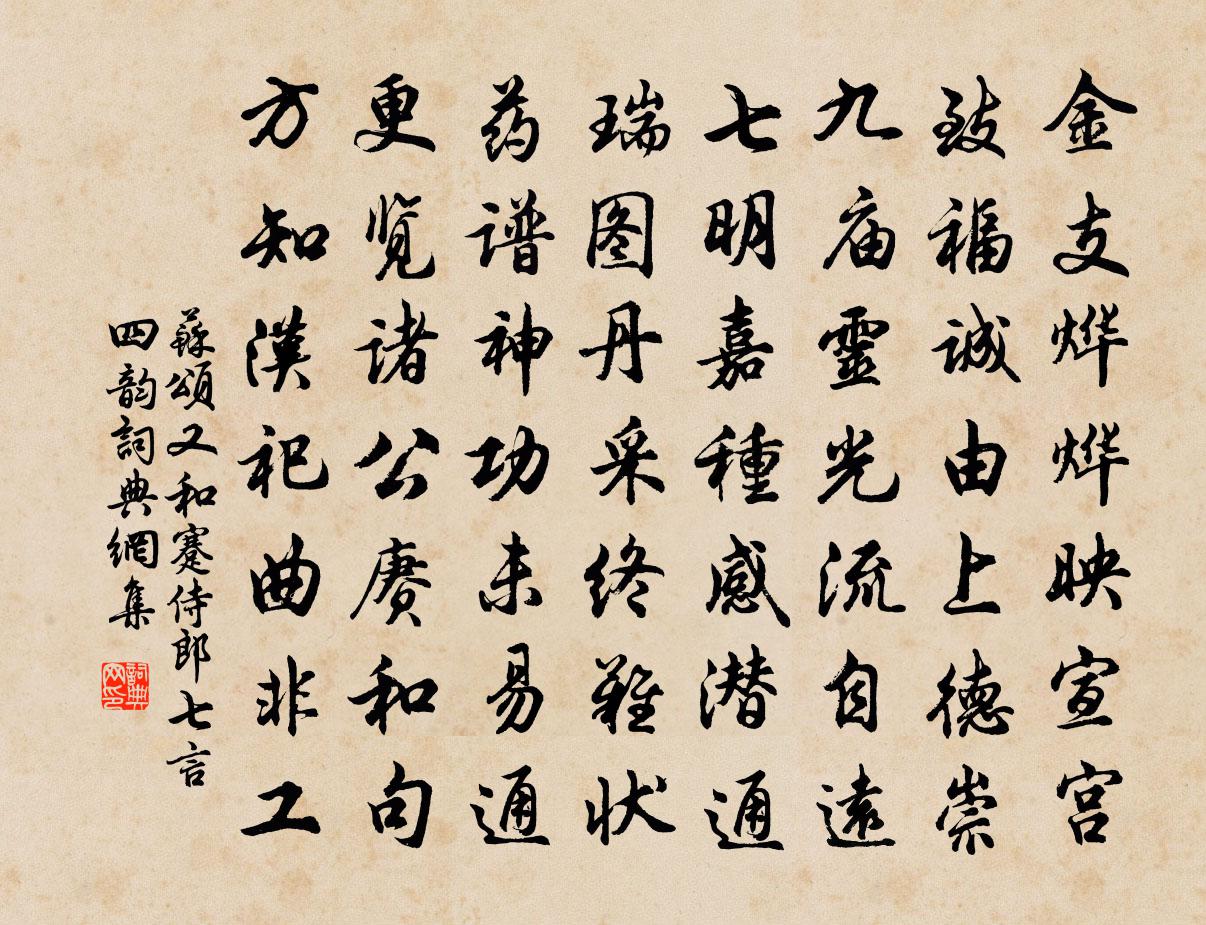 金支烨烨映宣宫
致福诚由上德崇
九庙靈光流自遠
七明嘉種感潜通
瑞图丹采终難状
药谱神功未易通
更览诸公赓和句
方知漢祀曲非工
蘇頌又和蹇侍郎七言
四韵詞典網集
詞典网印